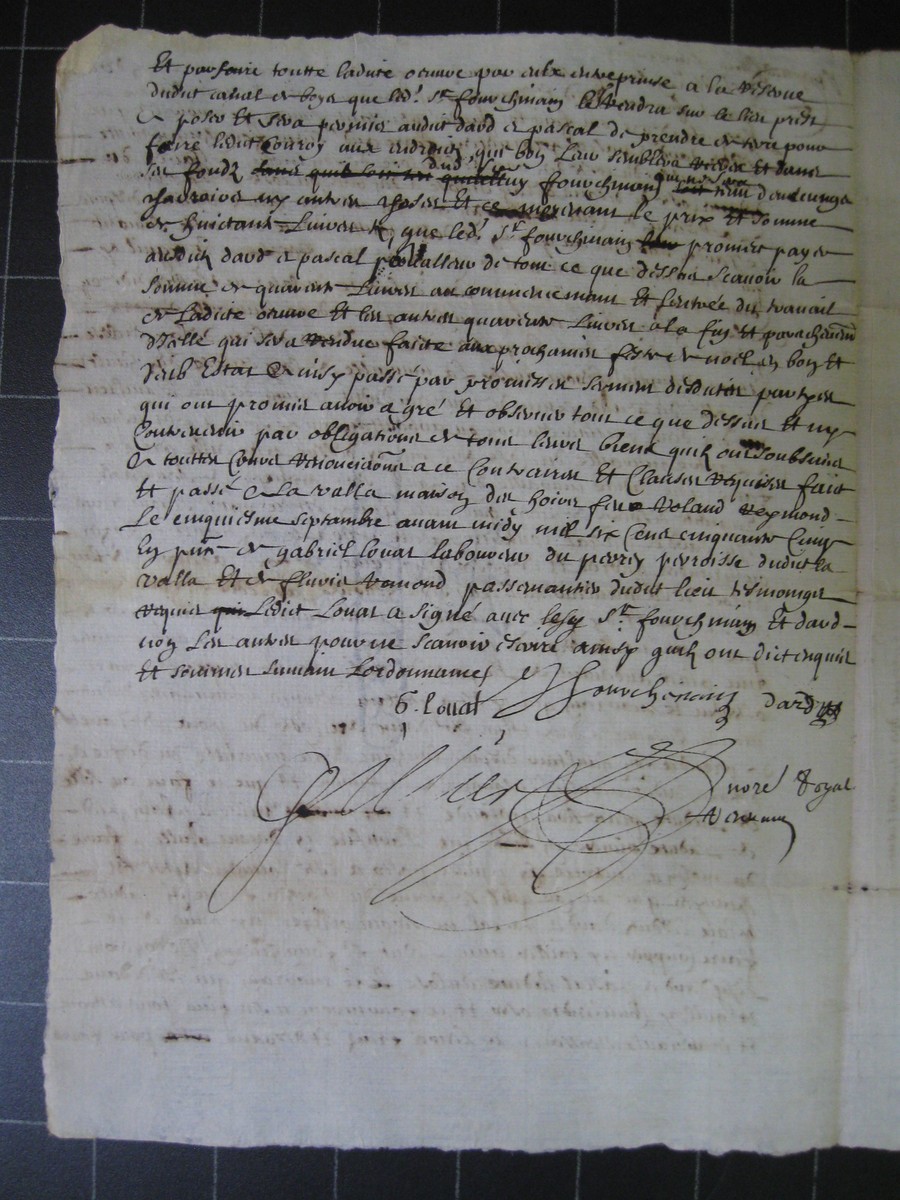 Et parfaire toutte ladicte oeuvre par eulx entreprinse a la reserve
dudit canal de boys que led. Sr fourchinain rendra sur le lieu prest
a poser Et sera permis audit dard et pascal de prendre de terre pour
faire ledit couroy aux endroits que bon leur semblera et dans
les fondz dud. Sr fourchinain
ny autres choses Et le prix Et somme
de huictante Livres que led. Sr fourchinain promect payer
ausdits dard et pascal de tout ce que dessus scavoir la
somme de quarante Livres au commencement Et du travail
de Ladicte oeuvre Et les autres quarante Livres a la fin et parachevement
d'Icelle qui sera rendue faicte aux prochaines festes de noel en bon Et
deub Estat Ainsy passé par promesses serment desdites parties
qui ont promis avoir a gré Et observer tout ce que dessus Et ny
contrevenir par obligations de tous leurs biens quils ont soubsmis
A touttes Cours renonciations a ce Contraires Et Clauses requises fait
Et passé A La valla maison des hoirs feu Roland reymond
Le cinquiesme septembre avant midy mil six Cens cinquante Cinq
En pnce de gabriel Louat laboureur du perrey perroisse dudit La
valla Et de flurie remond passementier dudit lieu tesmoings
requis Ledict Louat a signé avec lesd. Sr fourchinain Et dard
non Les autres pour ne scavoir escrire ainsy quils ont dict enquis
Et sommes suivant Lordonnance
G. Louat Fourchinain dard
noré Royal